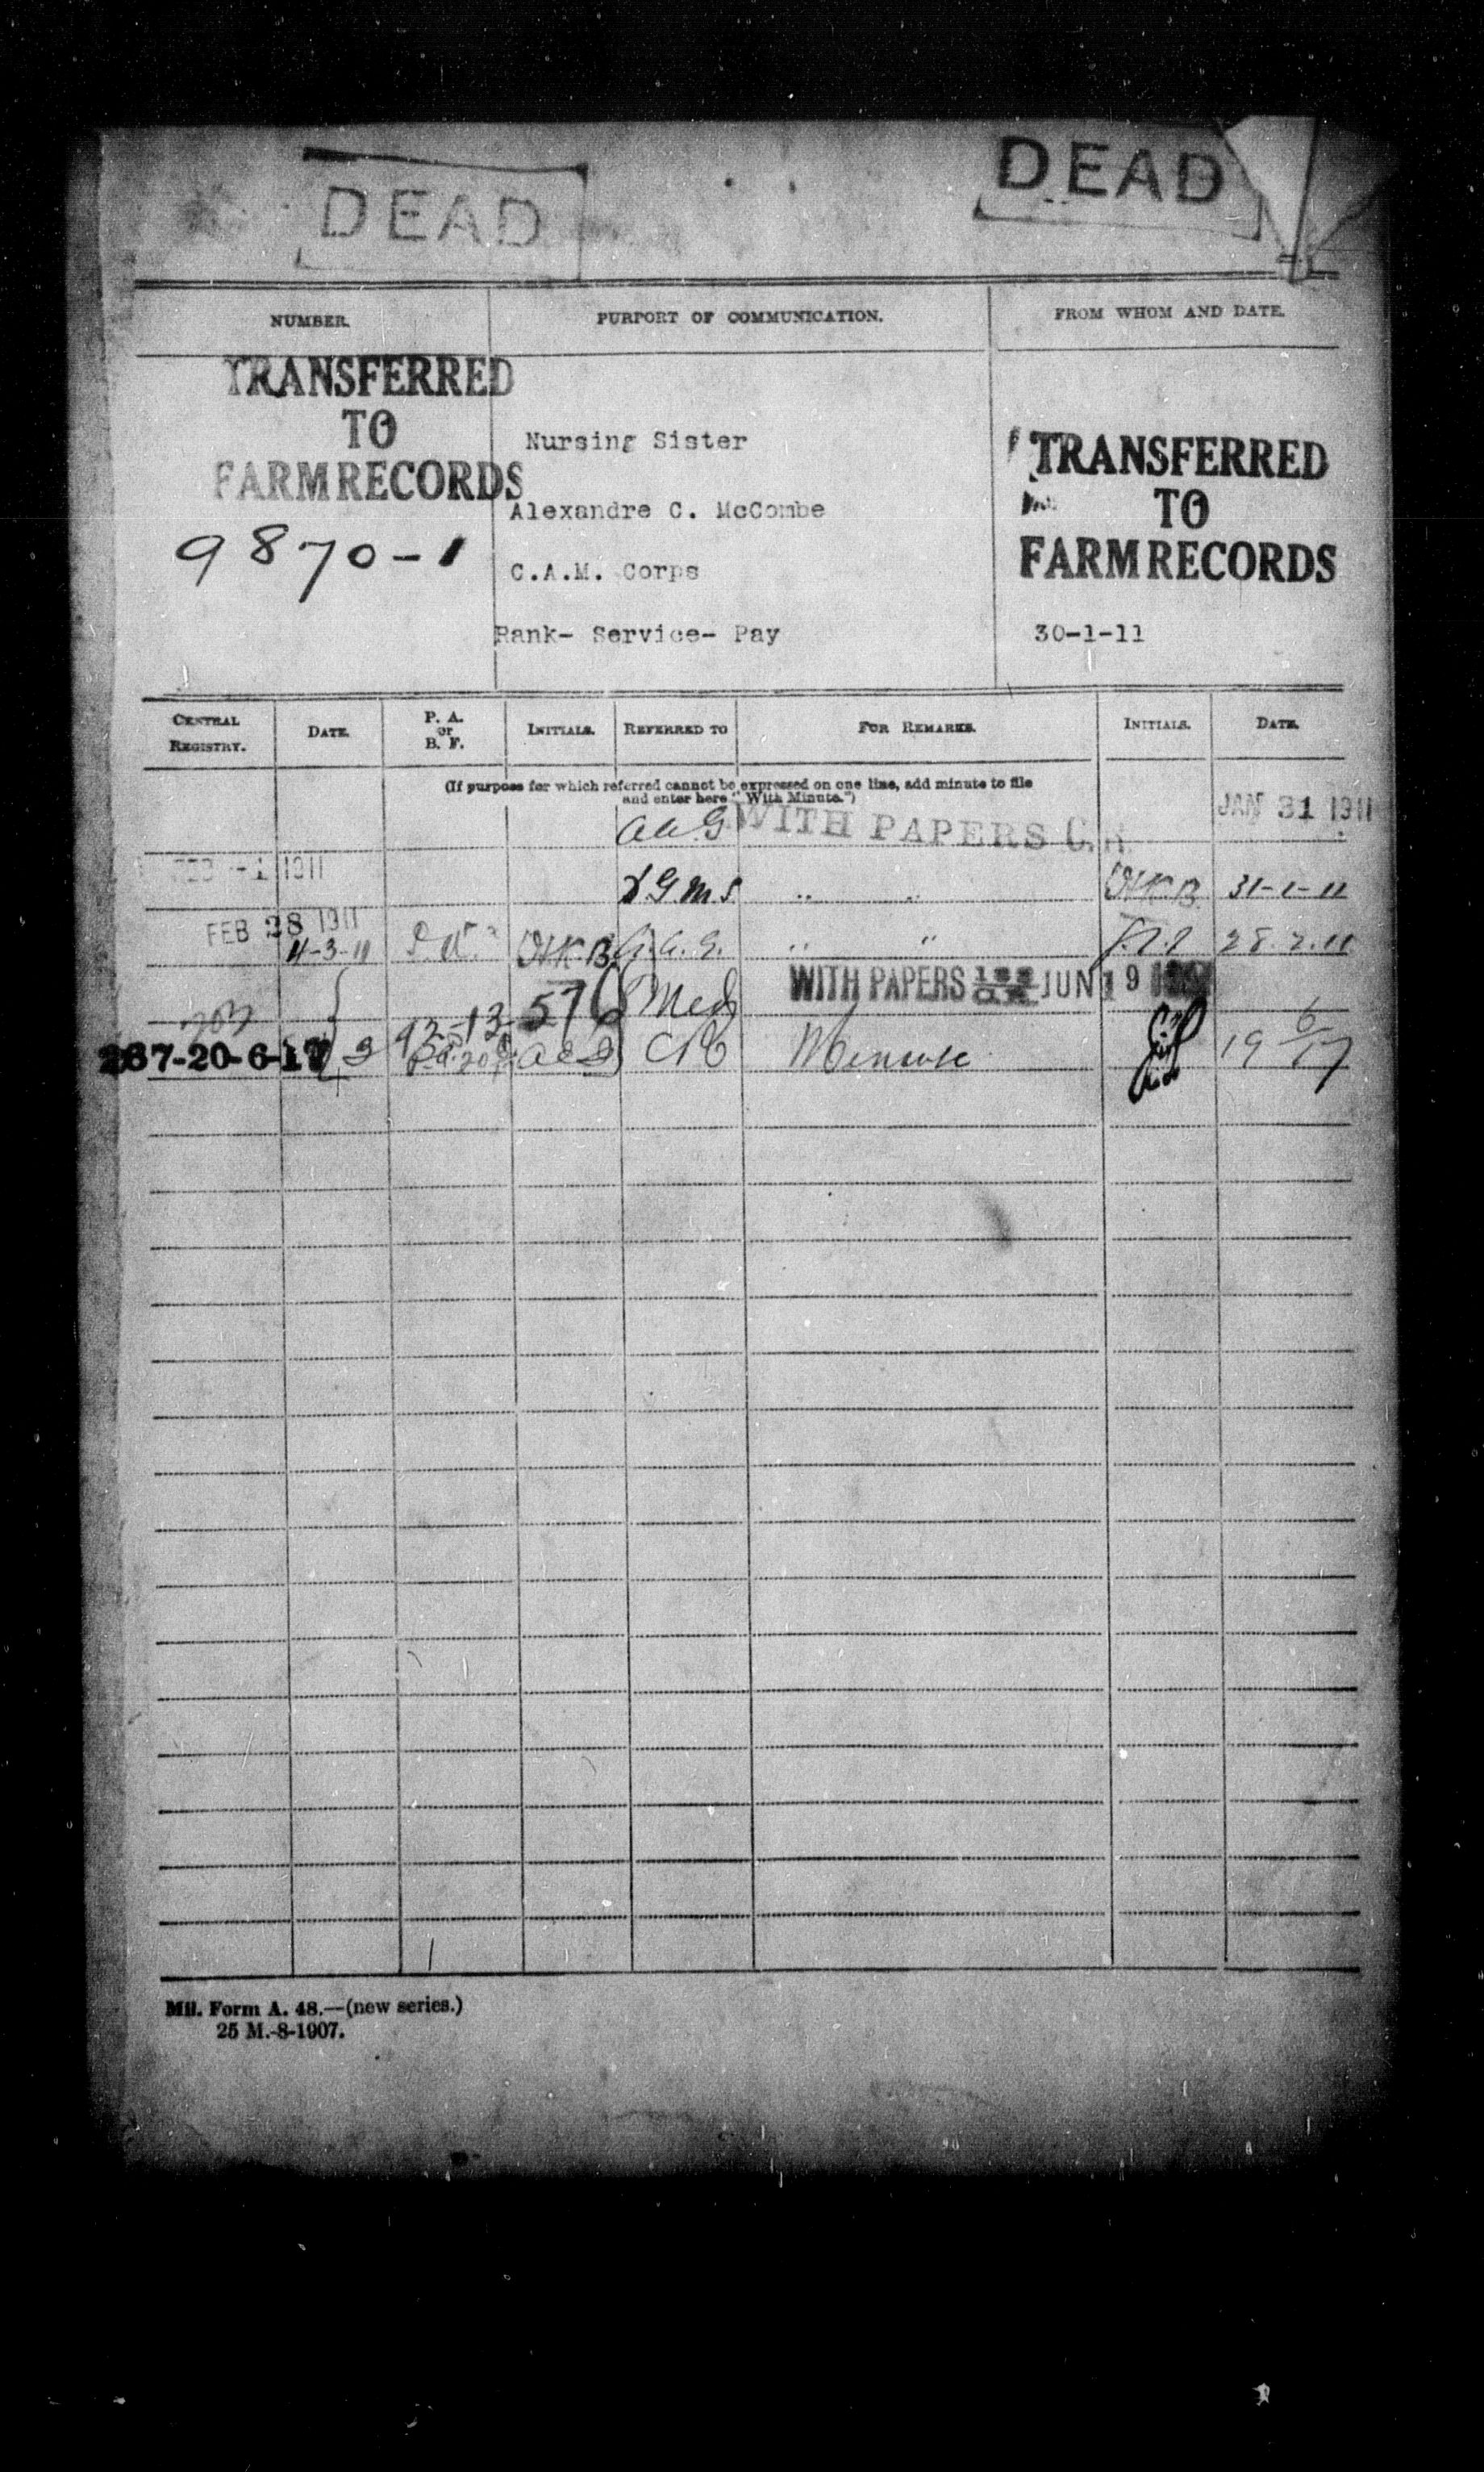 DEAD
DEAD
NUMBER.
PURPORT OF COMMUNICATION.
FROM WHOM AND DATE.
TRANSFERRED
TO
FARM RECORDS
9870-1
Nursing Sister
Alexandre C. McCombe
C.A.M. Corps
Rank- Service- Pay
TRANSFERRED
TO
FARM RECORDS
30-1-11
CENTRAL REGISTRY.
DATE.
P. A. or B. F.
INITIALS.
REFERRED TO
FOR REMARKS.
INITIALS.
DATE.
(If purpose for which referred cannot be expressed on one line, add minute to file
and enter here "With Minute.")
WITH PAPERS C.R. JAN 31 1911
FEB -1 1911
D.G.M.S " " 31-1-11
FEB 28 1911
4-3-11 A.A.G. " " 28.2.11
576 Med WITH PAPERS JUN 19
267-20-6-17 Minute 19 6/17
Mil. Form A. 48.—(new series.)
25 M.-8-1907.